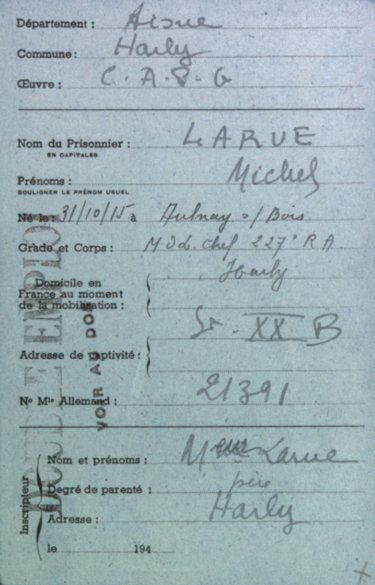 Département : Aisne
Commune : Harly
Œuvre : C. A. P. G
Nom du Prisonnier : LARUE
EN CAPITALES
Prénoms : Michel
SOULIGNER LE PRÉNOM USUEL
Né le : 31/10/15 à Aulnay s/Bois
Grade et Corps : M d L chef 227e R A
Domicile en
France au moment
de la mobilisation : Harly
Adresse de captivité : St. XX B
No Mle Allemand : 21391
Inscripteur
Nom et prénoms : Larue
Degré de parenté : père
Adresse : Harly
le 194
VOIR AU DOS